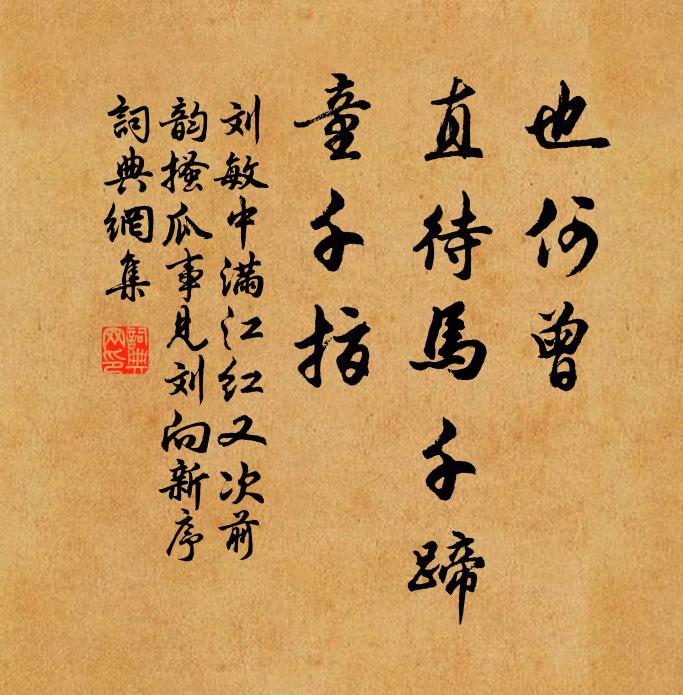 也何曾
直待馬千蹄
童千指
刘敏中满江红又次前
韵搔瓜事見刘向新序
詞典網集
詞典
网印